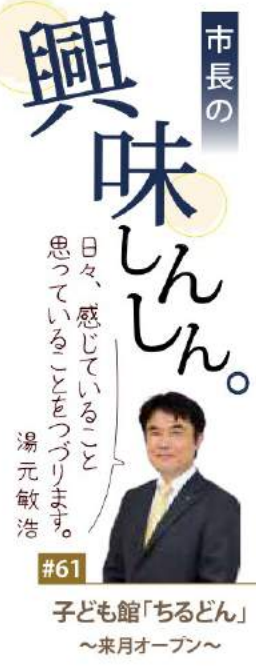 市長の
興味しんしん。
日々、感じていること
思っていることをつづります。
湯元敏浩
#61
子ども館「ちるどん」
～来月オープン～